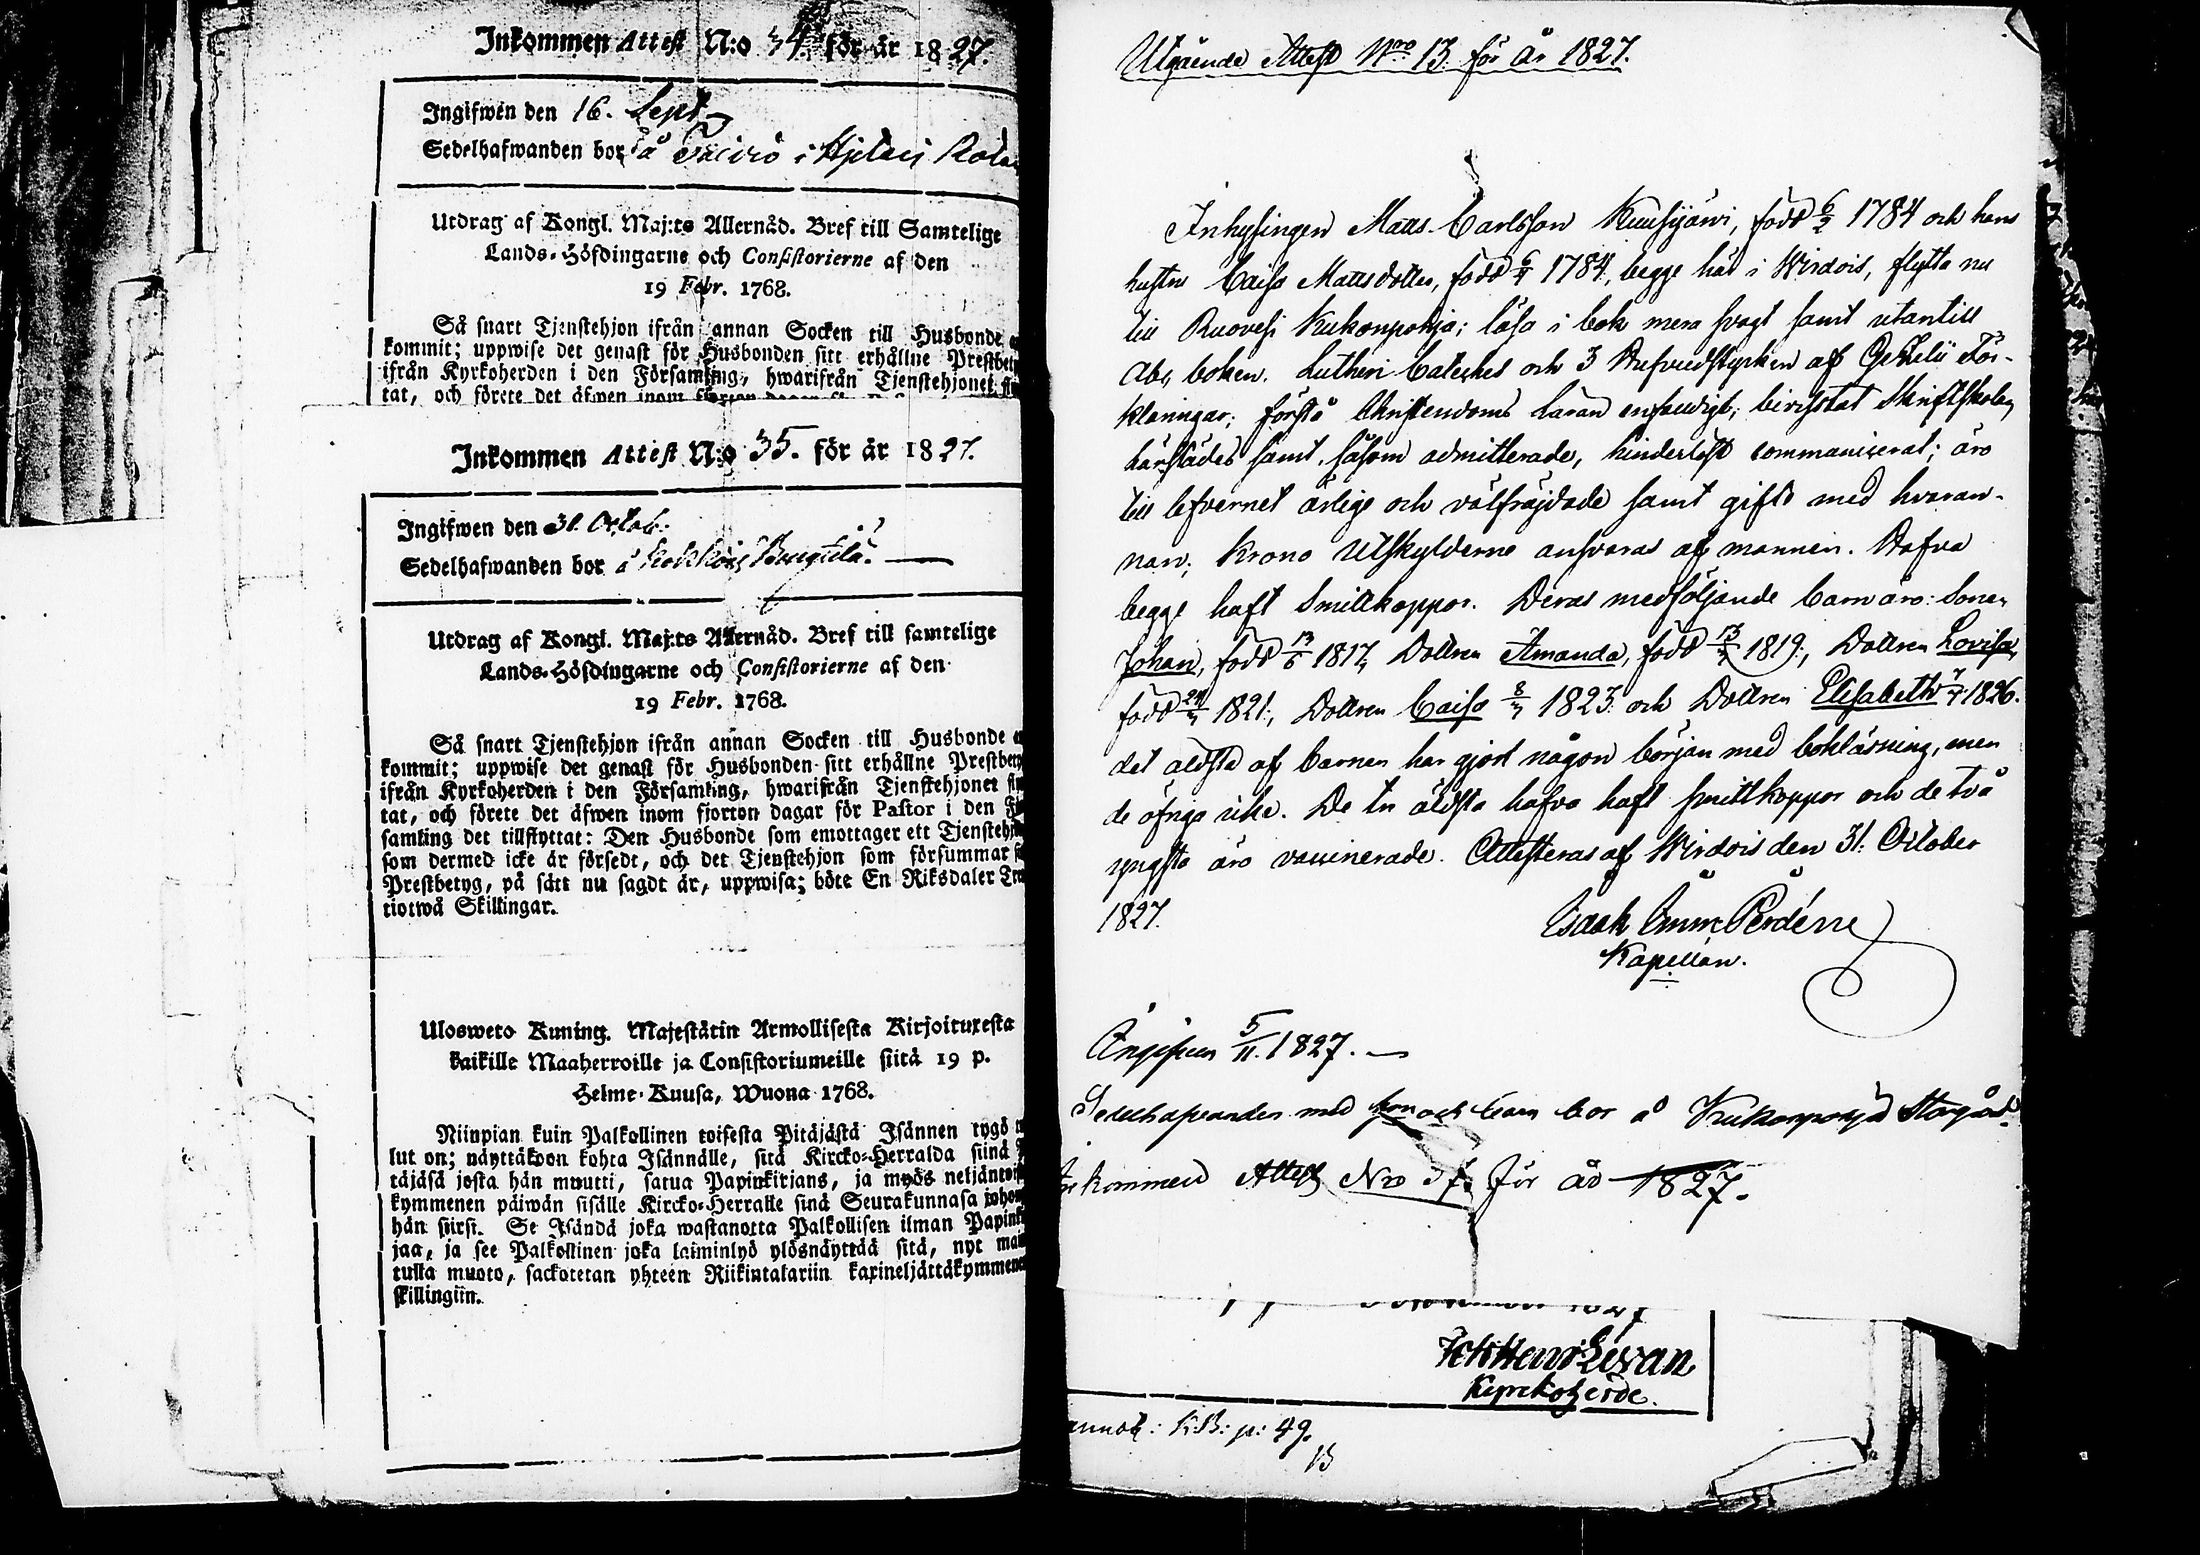 Inkommen Attest N:o 34. för år 1827.
Ingifwen den 16. Sept
Sedelhafwanden bor å i Rote
Utdrag af Kongl. Maj:ts Allernåd. Bref till Samtelige
Lands-Höfdingarne och Consistorierne af den
19 Febr. 1768.
Så snart Tjenstehjon ifrån annan Socken till Husbonde
kommit; uppwise det genast för Husbonden sitt erhållne Prestbety
ifrån Kyrkoherden i den Församling, hwarifrån Tjenstehjonet
tat, och förete det äfwen inom fjorton dagar
Inkommen Attest N:o 35. för år 1827.
Ingifwen den 31. Octob:
Sedelhafwanden bor å
Utdrag af Kongl. Maj:ts Allernåd. Bref till samtelige
Lands-Höfdingarne och Consistorierne af den
19 Febr. 1768.
Så snart Tjenstehjon ifrån annan Socken till Husbonde
kommit; uppwise det genast för Husbonden sitt erhållne Prestbety
ifrån Kyrkoherden i den Församling, hwarifrån Tjenstehjonet
tat, och förete det äfwen inom fjorton dagar för Pastor i den
samling det tillflyttat: Den Husbonde som emottager ett Tjenstehjo
som dermed icke är försedt, och det Tjenstehjon som försummar
Prestbetyg, på sätt nu sagdt är, uppwisa; böte En Riksdaler
tiotwå Skillingar.
Ulosweto Kuning. Majestätin Armollisesta Kirjoituxesta
kaikille Maaherroille ja Consistoriumeille siitä 19 p.
Helme-Kuusa, Wuona 1768.
Niinpian kuin Palkollinen toisesta Pitäjästä Isännen tygö
lut on; näyttäkoon kohta Isännälle, sitä Kircko-Herralda siinä
täjäsä josta hän muutti, satua Papinkirjans, ja myös neljäntois
kymmenen päiwän sisälle Kircko-Herralle sinä Seurakunnasa johon
hän siirsi. Se Isändä joka wastanotta Palkollisen ilman Papin
jaa, ja see Palkollinen joka laiminlyö ylösnäyttää sitä, nyt mai
tulla muoto, sackotetan yhteen Riikintalariin kaxineljättäkymmen
skillingiin.
Utgående Attest Nro 13. för år 1827.
Inhysingen Matts Carlsson Kuusijärwi, född 6/2 1784 och hans
hustru Caisa Mattsdotter, född 1784, begge här i Wirdois, flytta nu
till Ruovesi Kukonpohja; läsa i bok mera svagt samt utantill
Abc boken. Lutheri Cateches och 3 Hufvudstycken af Gezelii För-
klaringar; förstå Christendoms Läran enfaldigt; bivistat Skriftskolan
härstädes samt, såsom admitterade, hinderlöst communicerat; äro
till lefvernet ärlige och välfräjdade samt gifte med hvaran-
nan; Krono Utskylderne ansvaras af mannen. Hafva
begge haft Smittkoppor. Deras medföljande barn äro: Sonen
Johan, född 1817, Dottren Amanda, född 1819, Dottren Lovisa,
född 1821, Dottren Caisa 1823 och Dottren Elisabeth 1826.
det äldsta af barnen har gjort någon början med bokläsning, men
de öfriga icke. De tre äldsta hafva haft smittkoppor och de två
yngsta äro vaccinerade. Attesteras af Wirdois den 31. October
1827.
Isaak Perdérne
Kapellan.
Ingifven 5/11. 1827.
Sedelhafvanden med hon och barn bor å Kukonpohja Storgård.
Inkommen Attest Nro för år 1827.
Kyrckoherde.
annot: K.B: p: 49.
13